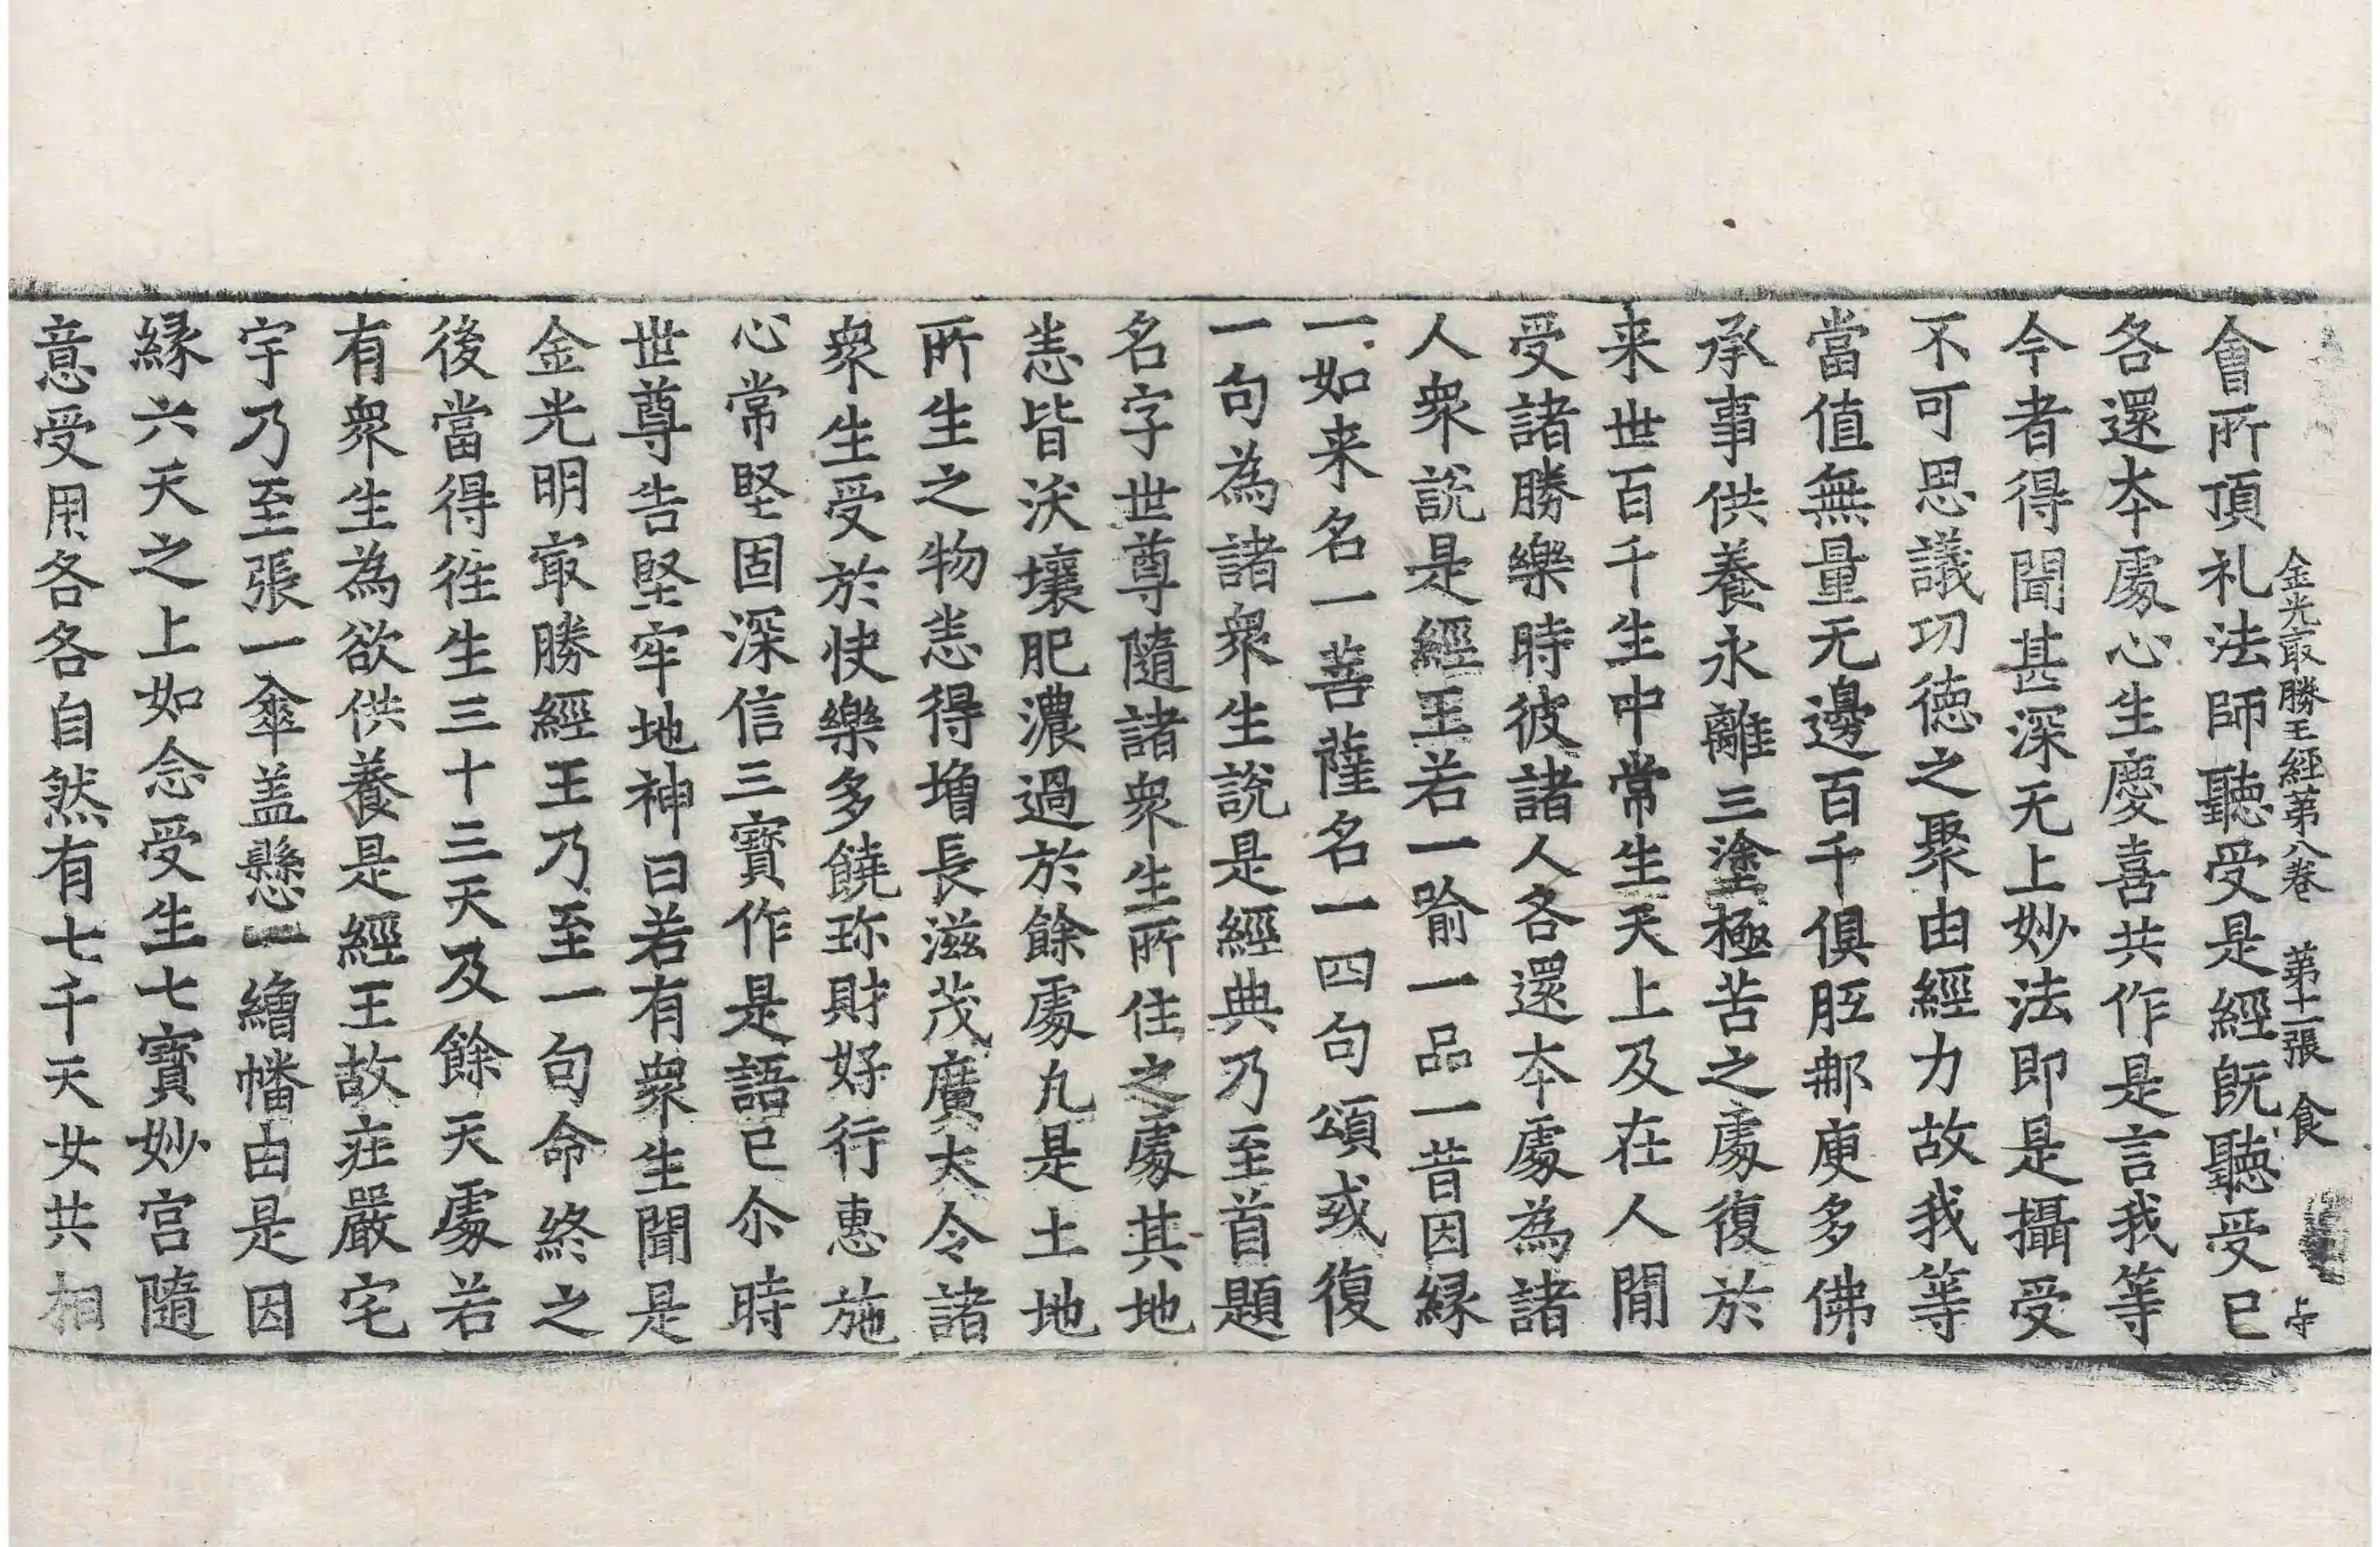 金光㝡勝王經第八卷　第十一張　食
會所頂礼法師聽受是經旣聽受已
各還夲處心生慶喜共作是言我等
今者得聞甚深无上妙法即是攝受
不可思議功德之聚由經力故我等
當值無量无邊百千俱胝䣯庾多佛
承事供養永離三塗極苦之處復於
来世百千生中常生天上及在人閒
受諸勝樂時彼諸人各還夲處為諸
人衆說是經王若一喻一品一昔因縁
一如来名一菩薩名一四句頌或復
一句為諸衆生說是經典乃至首題
名字世尊隨諸衆生所住之處其地
恚皆沃壤肥濃過於餘處九是土地
所生之物恚得增長滋茂廣大令諸
衆生受於快樂多饒珎財好行惠施
心常堅固深信三寶作是語已尒時
世尊告堅牢地神曰若有衆生聞是
金光明㝡勝經王乃至一句命終之
後當得徃生三十三天及餘天處若
有衆生為欲供養是經王故莊嚴宅
宇乃至張一傘盖懸一繒幡由是因
縁六天之上如念受生七寶妙宫隨
意受用各各自然有七千天女共相